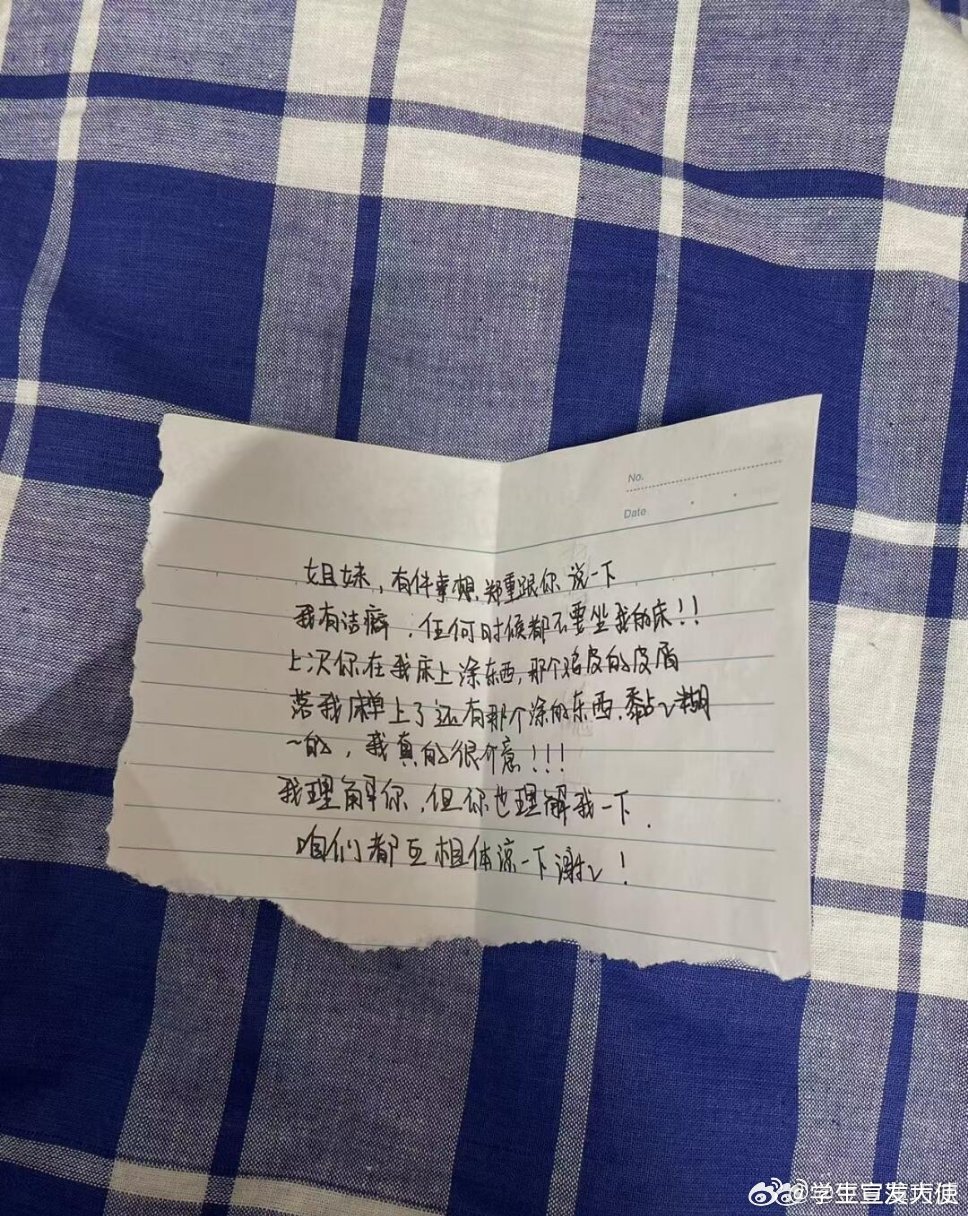 No.
Date
姐妹，有件事想郑重跟你说一下
我有洁癖，任何时候都不要坐我的床！！
上次你在我床上涂东西，那个鸡皮的皮屑
落我床单上了还有那个涂的东西，黏〻糊
〻的，我真的很介意！！！
我理解你，但你也理解我一下．
咱们都互相体谅一下谢〻！
@学生宣发大使